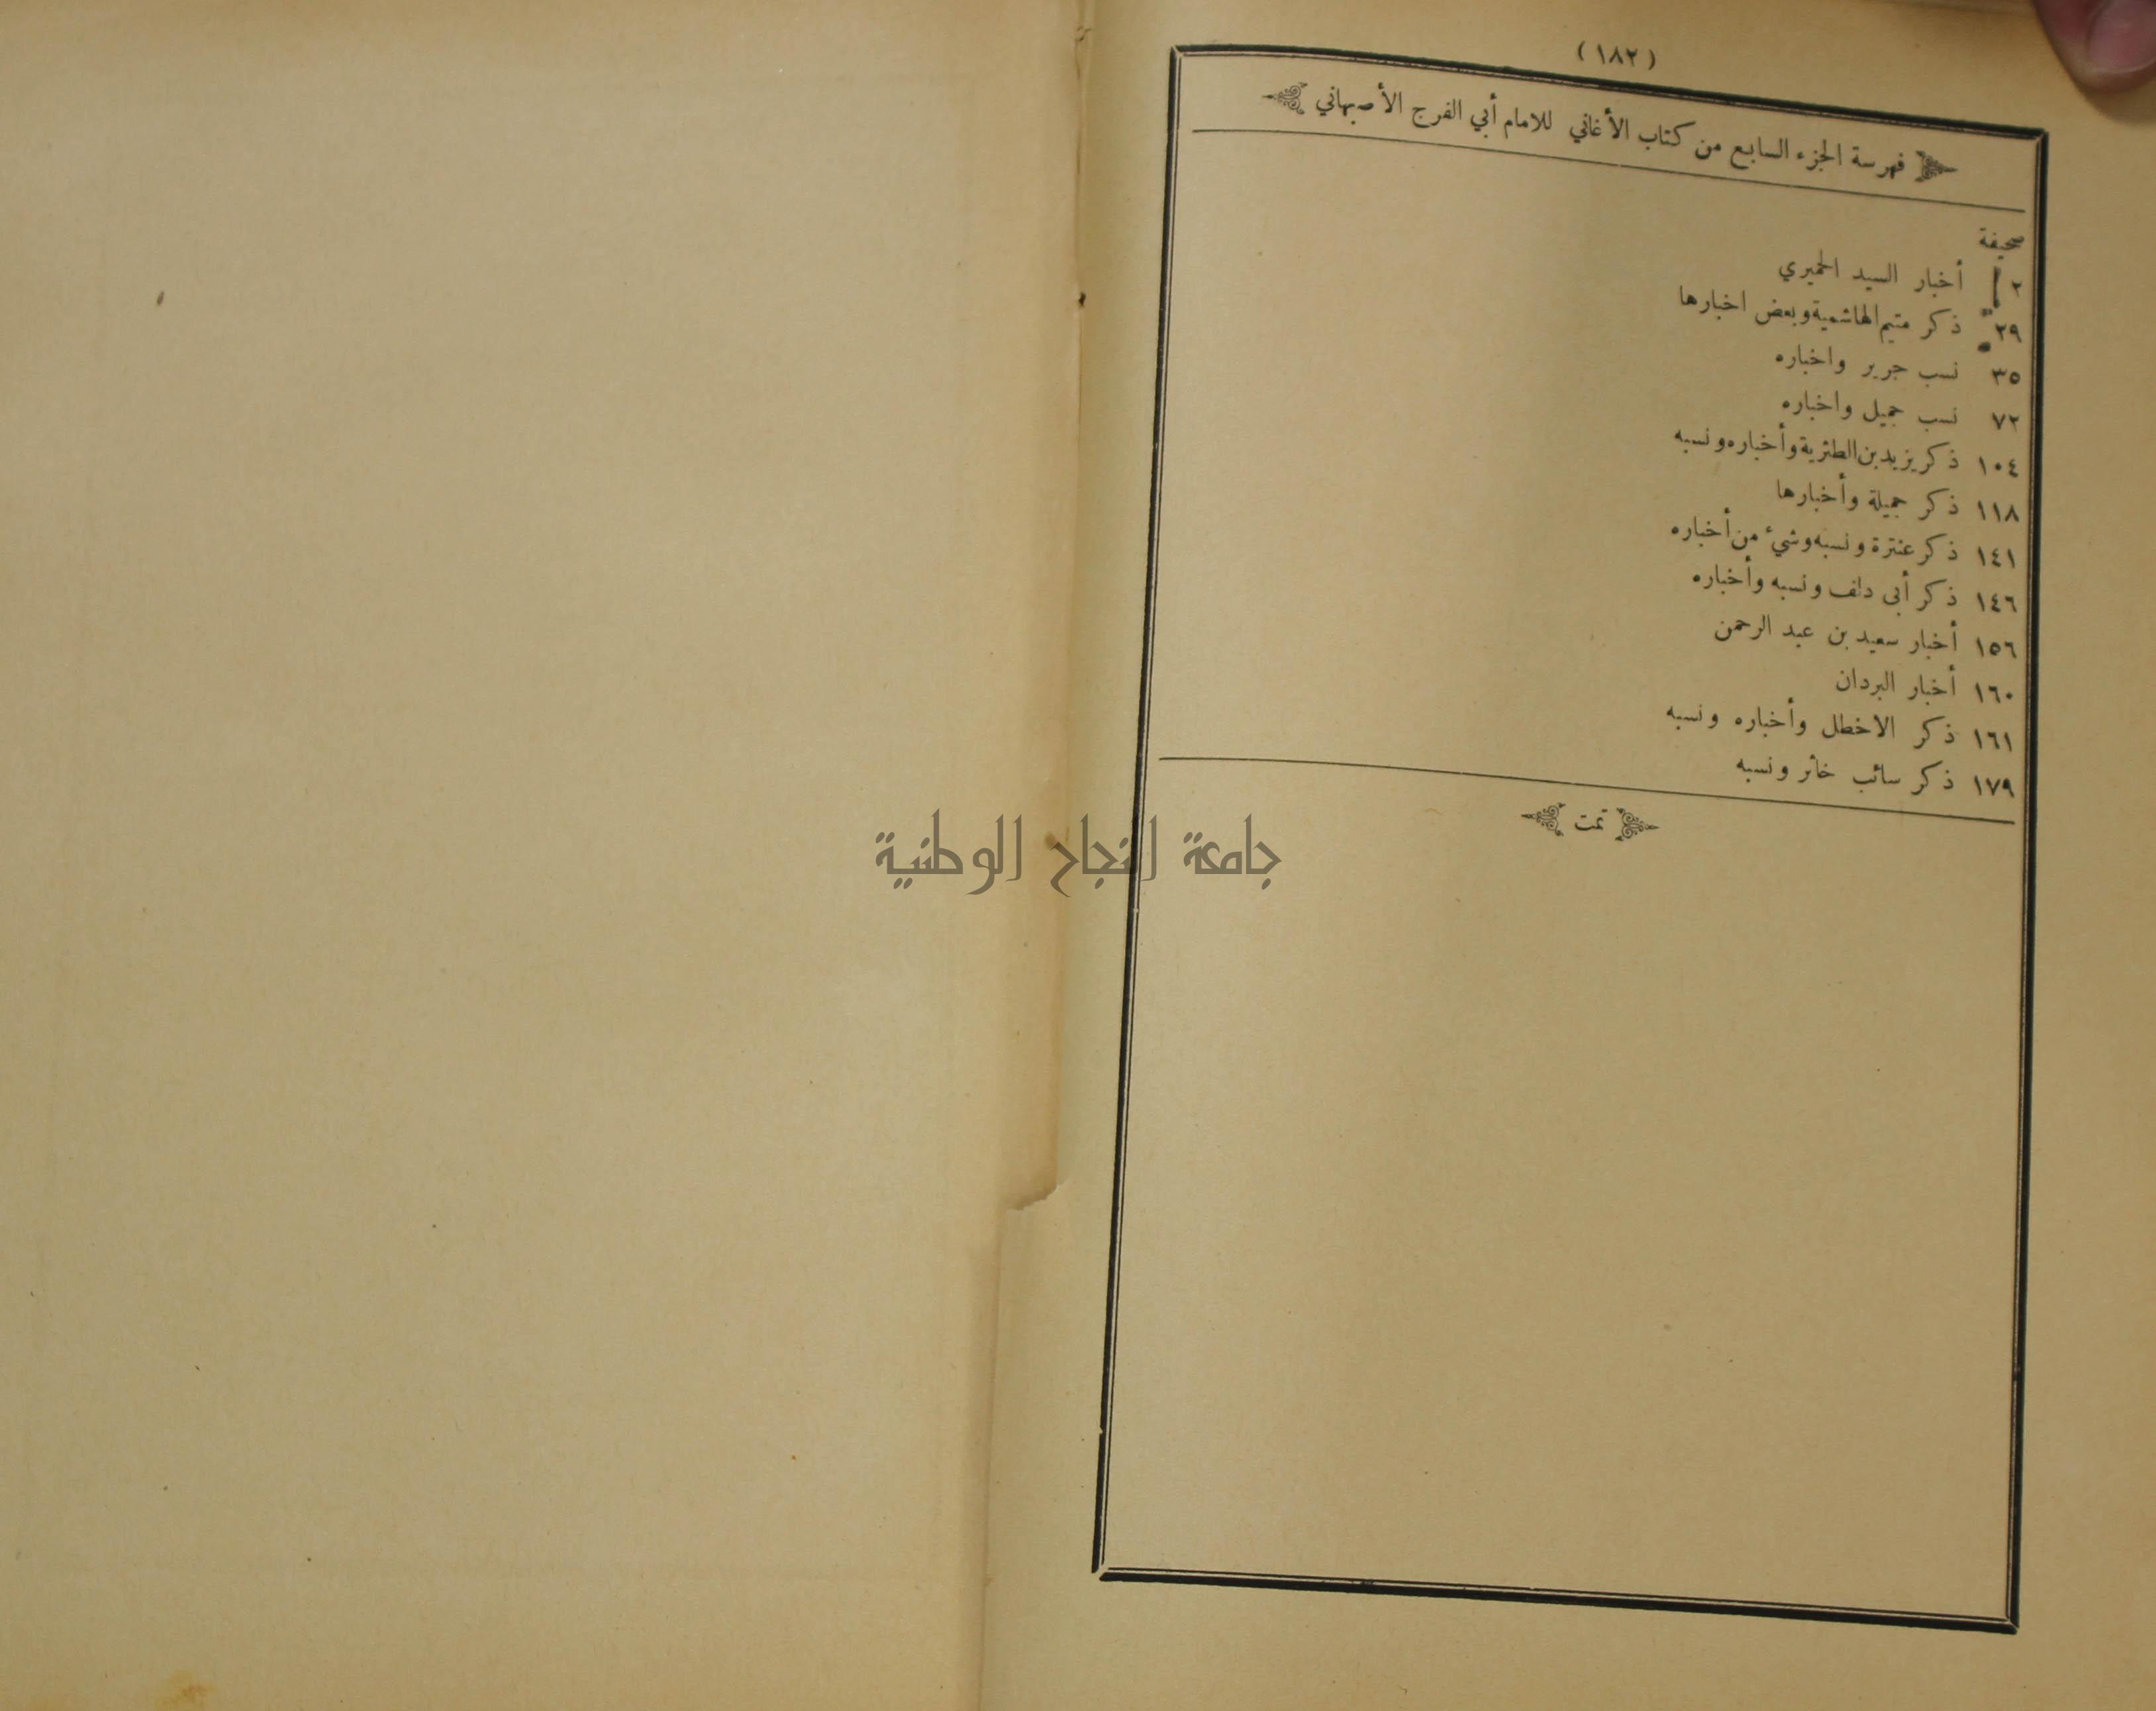 (١٨٢)
فهرسة الجزء السابع من كتاب الأغاني للامام أبي الفرج الأصبهاني
صحيفة
٢ أخبار السيد الحميري
٢٩ ذكر متيم الهاشمية وبعض اخبارها
٣٥ نسب جرير واخباره
٧٢ نسب جميل واخباره
١٠٤ ذكر يزيد بن الطثرية وأخباره ونسبه
١١٨ ذكر جميلة وأخبارها
١٤١ ذكر عنترة ونسبه وشيء من أخباره
١٤٦ ذكر أبى دلف ونسبه وأخباره
١٥٦ أخبار سعيد بن عبد الرحمن
١٦٠ أخبار البردان
١٦١ ذكر الاخطل وأخباره ونسبه
١٧٩ ذكر سائب خاثر ونسبه
تمت
جامعة النجاح الوطنية